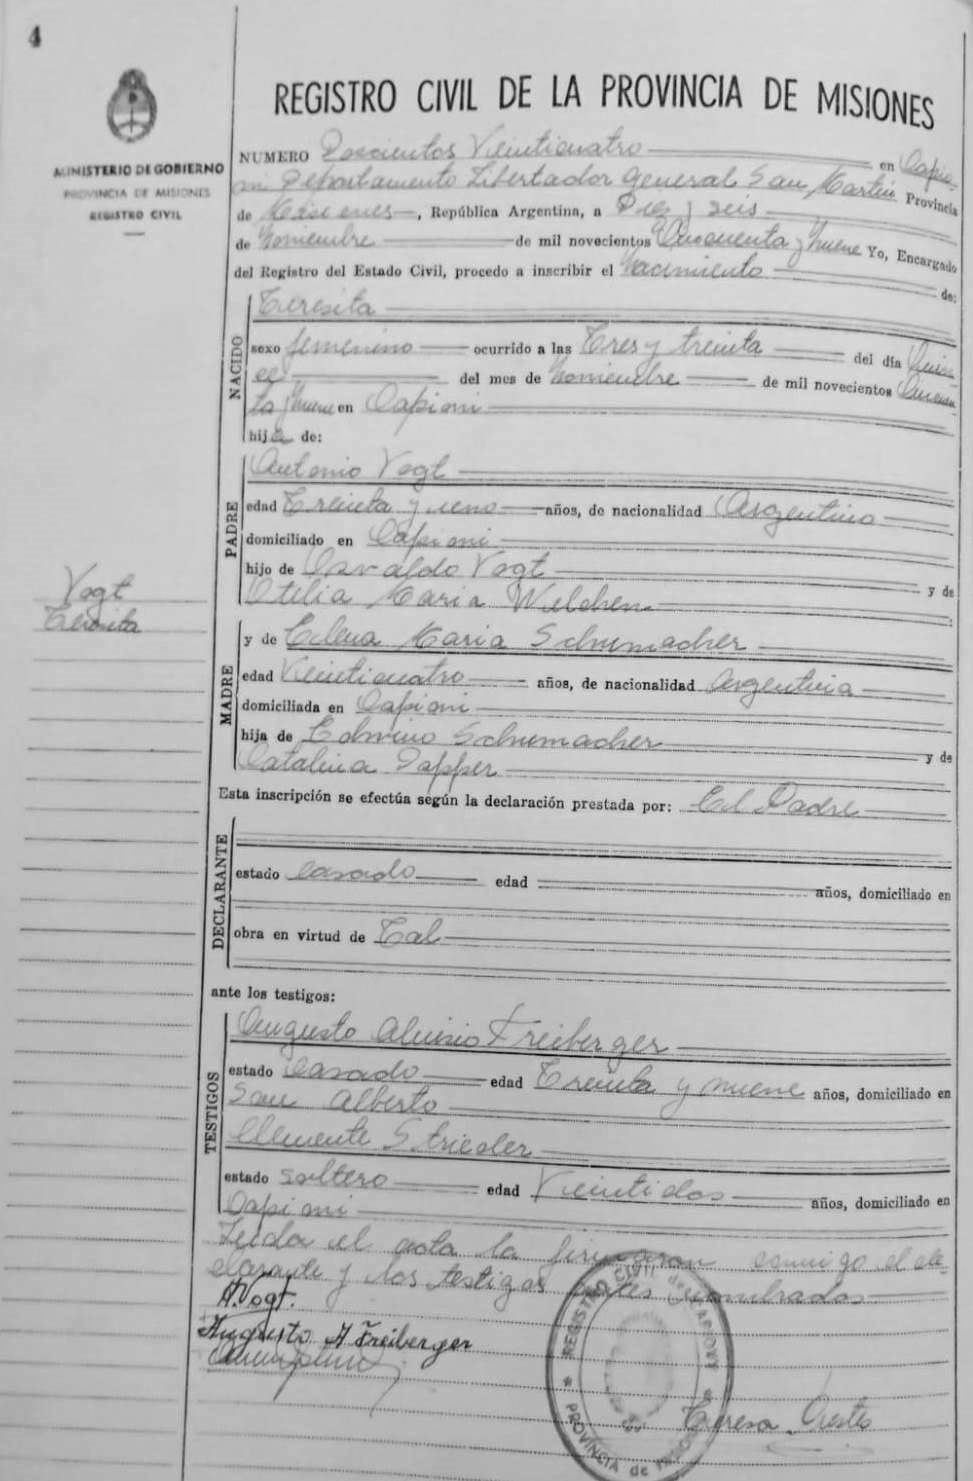 4
MINISTERIO DE GOBIERNO
PROVINCIA DE MISIONES
REGISTRO CIVIL
REGISTRO CIVIL DE LA PROVINCIA DE MISIONES
NUMERO Doscientos Veinticuatro en Capio-
vi Departamento Libertador General San Martin Provincia
de Misiones, República Argentina, a Diez y seis
de Noviembre de mil novecientos Cincuenta y Nueve Yo, Encargado
del Registro del Estado Civil, procedo a inscribir el Nacimiento de:
NACIDO
Teresita
sexo femenino ocurrido a las Tres y treinta del día Quin
ce del mes de Noviembre de mil novecientos Cincuen
ta y Nueve en Capiovi
hija de:
PADRE
Antonio Vogt
edad Treinta y uno años, de nacionalidad Argentino
domiciliado en Capiovi
hijo de Osvaldo Vogt y de
Otilia Maria Welchen
Vogt
Teresita
MADRE
y de Elena Maria Schumacher
edad Veinticuatro años, de nacionalidad Argentina
domiciliada en Capiovi
hija de Edvino Schumacher y de
Catalina Papper
Esta inscripción se efectúa según la declaración prestada por: El Padre
DECLARANTE
estado casado edad años, domiciliado en
obra en virtud de Tal
ante los testigos:
TESTIGOS
Augusto Aluisio Freiberger
estado Casado edad Treinta y nueve años, domiciliado en
San Alberto
Clemente Strieder
estado soltero edad Veintidos años, domiciliado en
Capiovi
Leida el acta la firmaron conmigo el de-
clarante y los testigos antes nombrados
A. Vogt.
Augusto A Freiberger
REGISTRO CIVIL de CAPIOVY
PROVINCIA de MISIONES
Teresa